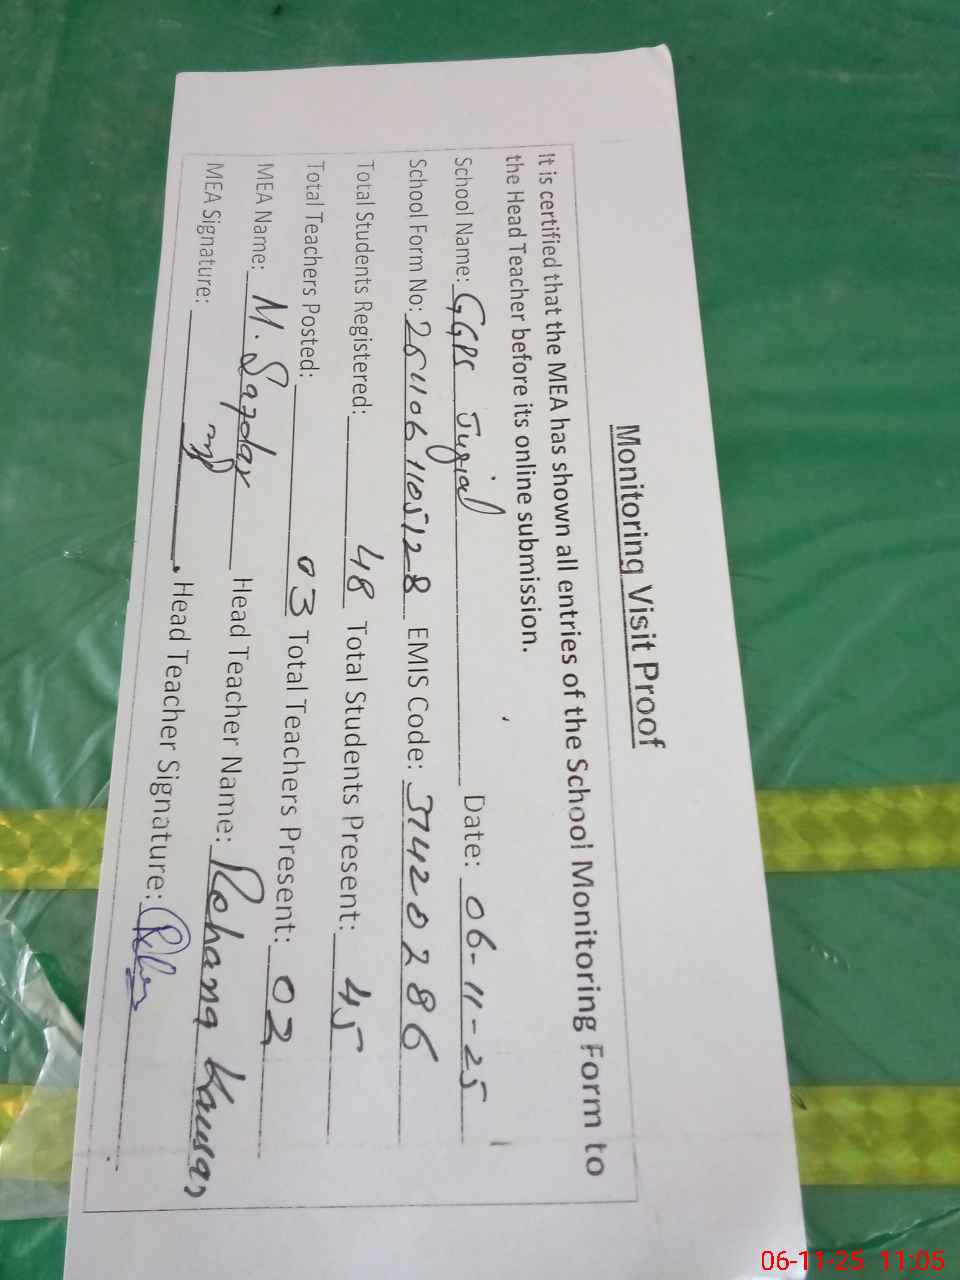 Monitoring Visit Proof
It is certified that the MEA has shown all entries of the School Monitoring Form to
the Head Teacher before its online submission.
School Name: GGPS Jugial Date: 06-11-25
School Form No: 251106110512-8 EMIS Code: 37420286
Total Students Registered: 48 Total Students Present: 45
Total Teachers Posted: 03 Total Teachers Present: 02
MEA Name: M. Safdar Head Teacher Name: Rehana Kausar
MEA Signature: Head Teacher Signature:
06-11-25 11:05